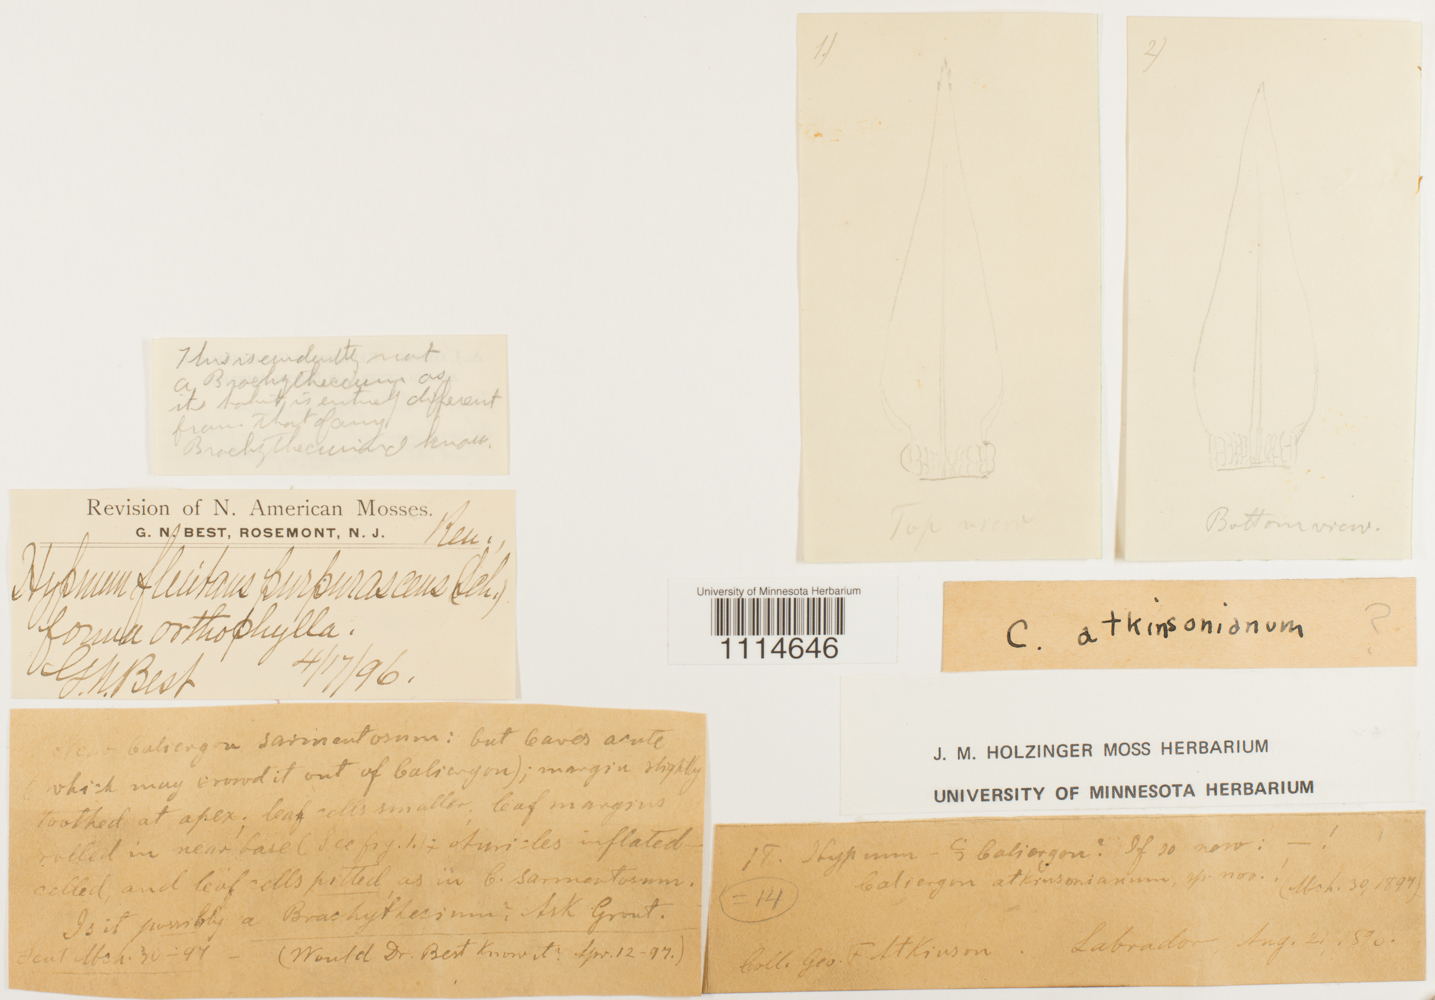 1)
Top view
2)
Bottom view.
This is evidently not
a Brachythecium as
its habit is entirely different
from that of any
Brachythecium I know.
Revision of N. American Mosses.
G. N. BEST, ROSEMONT, N. J.
Rev.,
Hypnum fluitans purpurascens (Sch.)
forma orthophylla.
G. N. Best 4/17/96.
University of Minnesota Herbarium
1114646
C. atkinsonianum ?
J. M. HOLZINGER MOSS HERBARIUM
UNIVERSITY OF MINNESOTA HERBARIUM
Near Caliergon sarmentosum: but leaves acute
(which may crowd it out of Caliergon); margin slightly
toothed at apex; leaf cells smaller, leaf margins
rolled in near base (see fig. 1.); auricles inflated-
celled, and leaf cells pitted, as in C. sarmentosum.
Is it possibly a Brachythecium? Ask Grout.
Sent Mch. 30-97 - (Would Dr. Best know it? Apr. 12-97.)
18. Hypnum - § Caliergon? If so new: — !
= 14
Caliergon atkinsonianum, sp. nov.! (Mch. 30, 1897)
Coll. Geo. F. Atkinson. Labrador, Aug. 21, 1890.